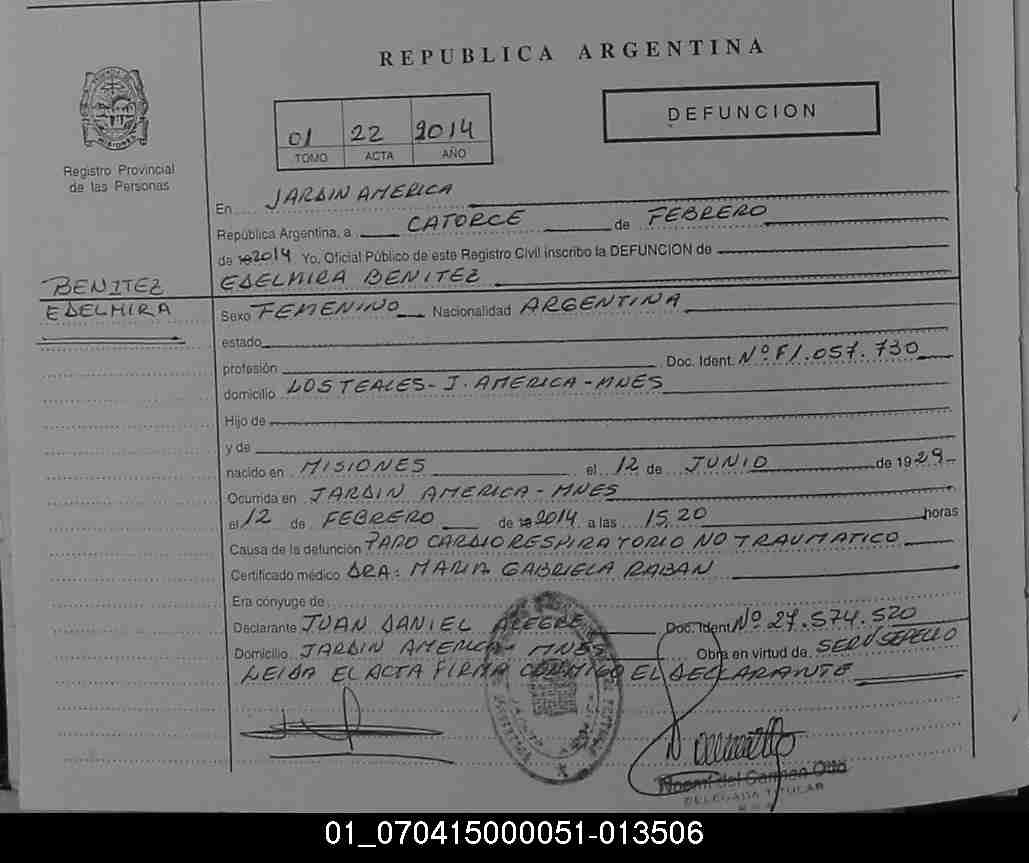 REPUBLICA ARGENTINA
DEFUNCION
01 22 2014
TOMO ACTA AÑO
Registro Provincial
de las Personas
En JARDIN AMERICA
República Argentina, a CATORCE de FEBRERO
de 2014 Yo, Oficial Público de este Registro Civil inscribo la DEFUNCION de
EDELMIRA BENITEZ
BENITEZ
EDELMIRA
Sexo FEMENINO Nacionalidad ARGENTINA
estado
profesión Doc. Ident. Nº F1.057.730
domicilio LOS TEALES - J. AMERICA - MNES
Hijo de
y de
nacido en MISIONES el 12 de JUNIO de 1929
Ocurrida en JARDIN AMERICA - MNES
el 12 de FEBRERO de 2014 a las 15,20 horas
Causa de la defunción PARO CARDIORESPIRATORIO NO TRAUMATICO
Certificado médico DRA: MARIA GABRIELA RABAN
Era cónyuge de
Declarante JUAN DANIEL ALEGRE Doc. Ident Nº 27.574.520
Domicilio JARDIN AMERICA - MNES Obra en virtud de SERV SEPELIO
LEIDA EL ACTA FIRMA CONMIGO EL DECLARANTE
Noemí del Carmen Otto
DELEGADA TITULAR
01_070415000051-013506